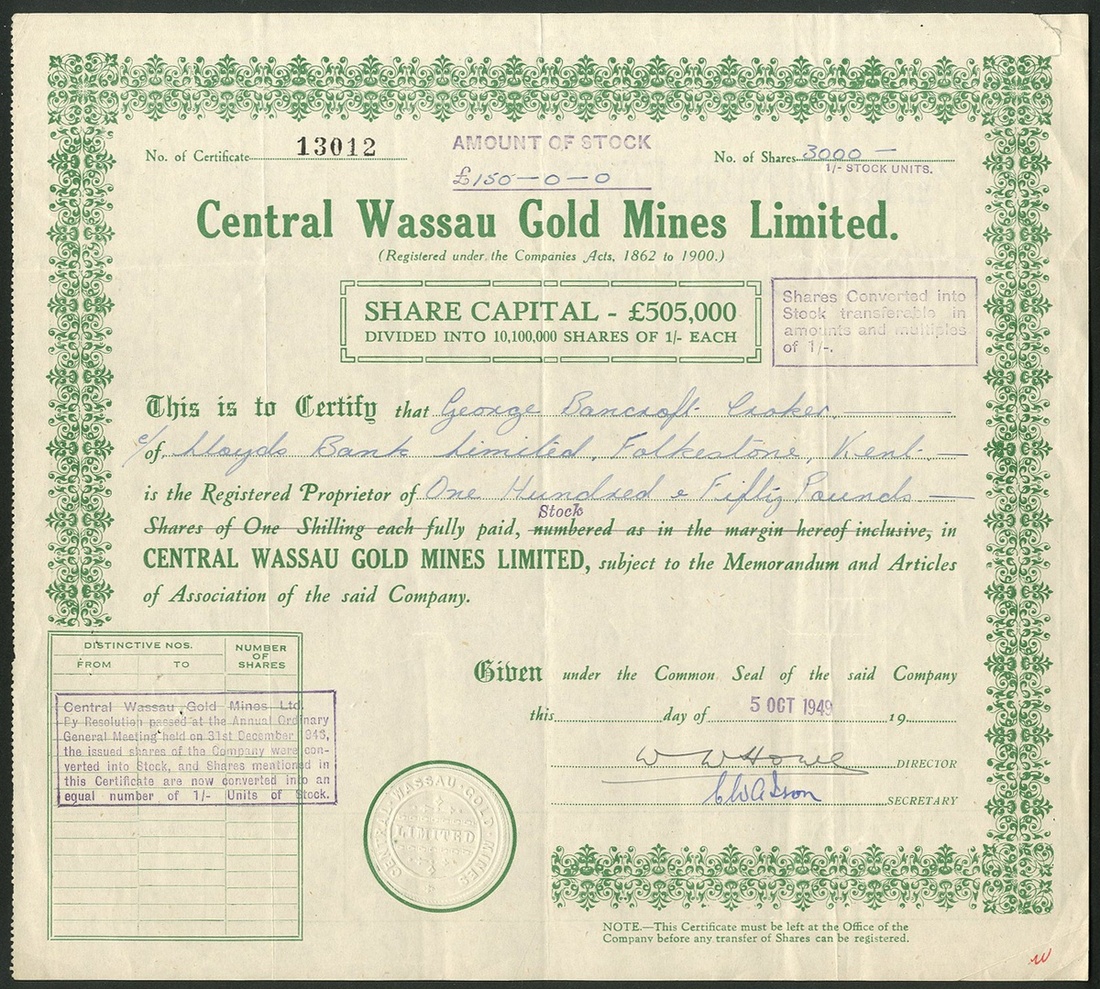 No. of Certificate 13012
AMOUNT OF STOCK
£150-0-0
No. of Shares 3000 —
1/- STOCK UNITS.
Central Wassau Gold Mines Limited.
(Registered under the Companies Acts, 1862 to 1900.)
SHARE CAPITAL - £505,000
DIVIDED INTO 10,100,000 SHARES OF 1/- EACH
Shares Converted into
Stock transferable in
amounts and multiples
of 1/-.
This is to Certify that George Bancroft Croker.
c/ of Lloyds Bank Limited, Folkestone, Kent.
is the Registered Proprietor of One Hundred & Fifty Pounds
Stock
Shares of One Shilling each fully paid, numbered as in the margin hereof inclusive, in
CENTRAL WASSAU GOLD MINES LIMITED, subject to the Memorandum and Articles
of Association of the said Company.
DISTINCTIVE NOS.
FROM TO
NUMBER
OF
SHARES
Central Wassau Gold Mines Ltd.
By Resolution passed at the Annual Ordinary
General Meeting held on 31st December 1943,
the issued shares of the Company were con-
verted into Stock, and Shares mentioned in
this Certificate are now converted into an
equal number of 1/- Units of Stock.
Given under the Common Seal of the said Company
this day of 5 OCT 1949 19
W W Howe DIRECTOR
SECRETARY
CENTRAL WASSAU GOLD MINES
LIMITED
NOTE.—This Certificate must be left at the Office of the
Company before any transfer of Shares can be registered.